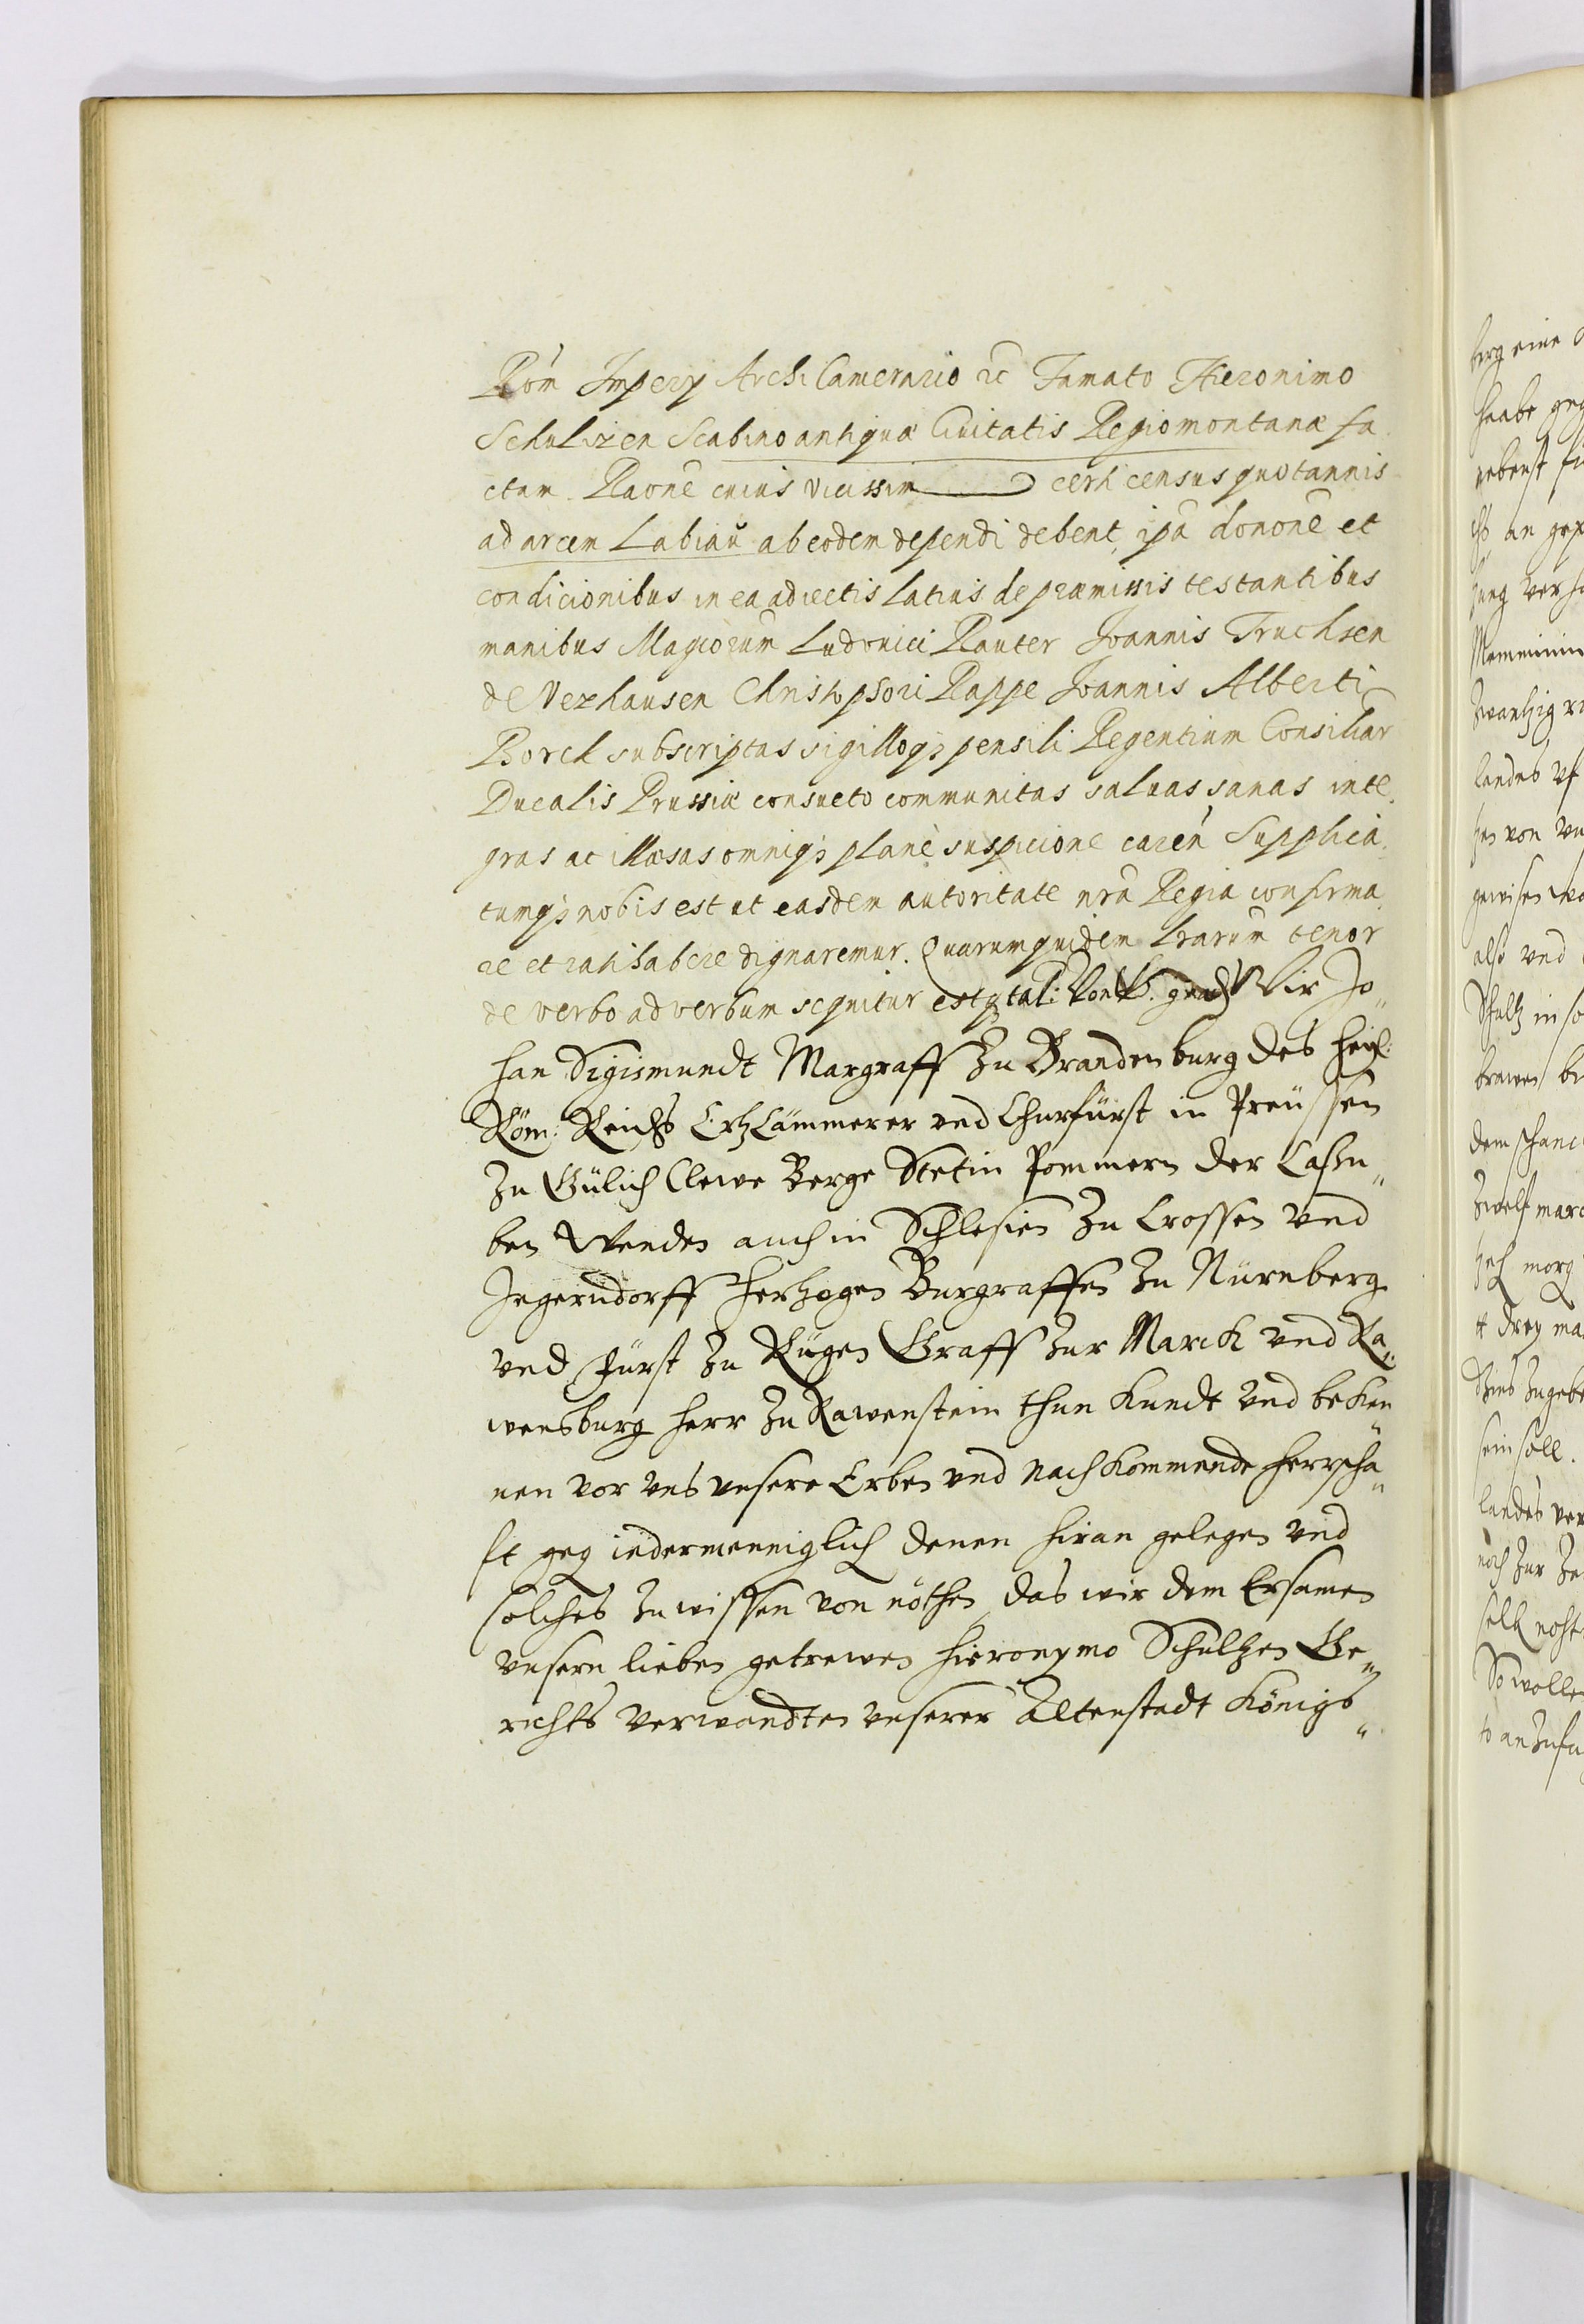 Rom Impery ArchiCamerario &c Famato Hieronimo
Schulzen Scabino antiquæ Ciuitatis Regiomontanæ fa
ctam. Raone cuius vicissim certi census quotannis
ad arcem Labiau ab eodem dependi debent, ipã donone et
condicionibus in ea adiectis latius de præmissis testantibus
manibus Magcorum Ludouici Rauter Joannis Truchsen
de Wezhausen Christophori Rappe Joannis Alberti
Borck subscriptas sigilloqȝ pensili Regentium Consiliar
Ducalis Prussiæ consueto communitas saluas sanas inte
gras ac illæsas omniqȝ planè suspicione caren Supplica
tumqȝ nobis est ut easdem autoritate nrã Regia confirma
re et ratihabere dignaremur. Quarum quidem lrarum tenor
de verbo ad verbum sequitur estqȝ tal: Von G. gnad Wir Jo„
han Sigismundt Margraff zu Brandenburg des Heil:
Röm: Reichs ErtzCämmerer vnd Churfürst in Preussen
zu Gülich Cleve Berge Stetin Pommern der Cassu„
ben Wenden auch in Schlesien zu Crossen vnd
Jegerndorff Hertzogen Burgraffen zu Nürnberg
vnd Fürst zu Rügen Graff zur Marck vnd Ra„
vensburg Herr zu Ravenstein thun kundt vnd beken„
nen vor vns vnsere Erben vnd nachkommende Herrscha„
ft geg iedermenniglich denen hiran gelegen vnd
solches zuwissen von nöthen das wir dem Ersamen
vnsern lieben getrewen Hieronymo Schultzen Ge„
richts verwandten vnserer Altenstadt Königs„